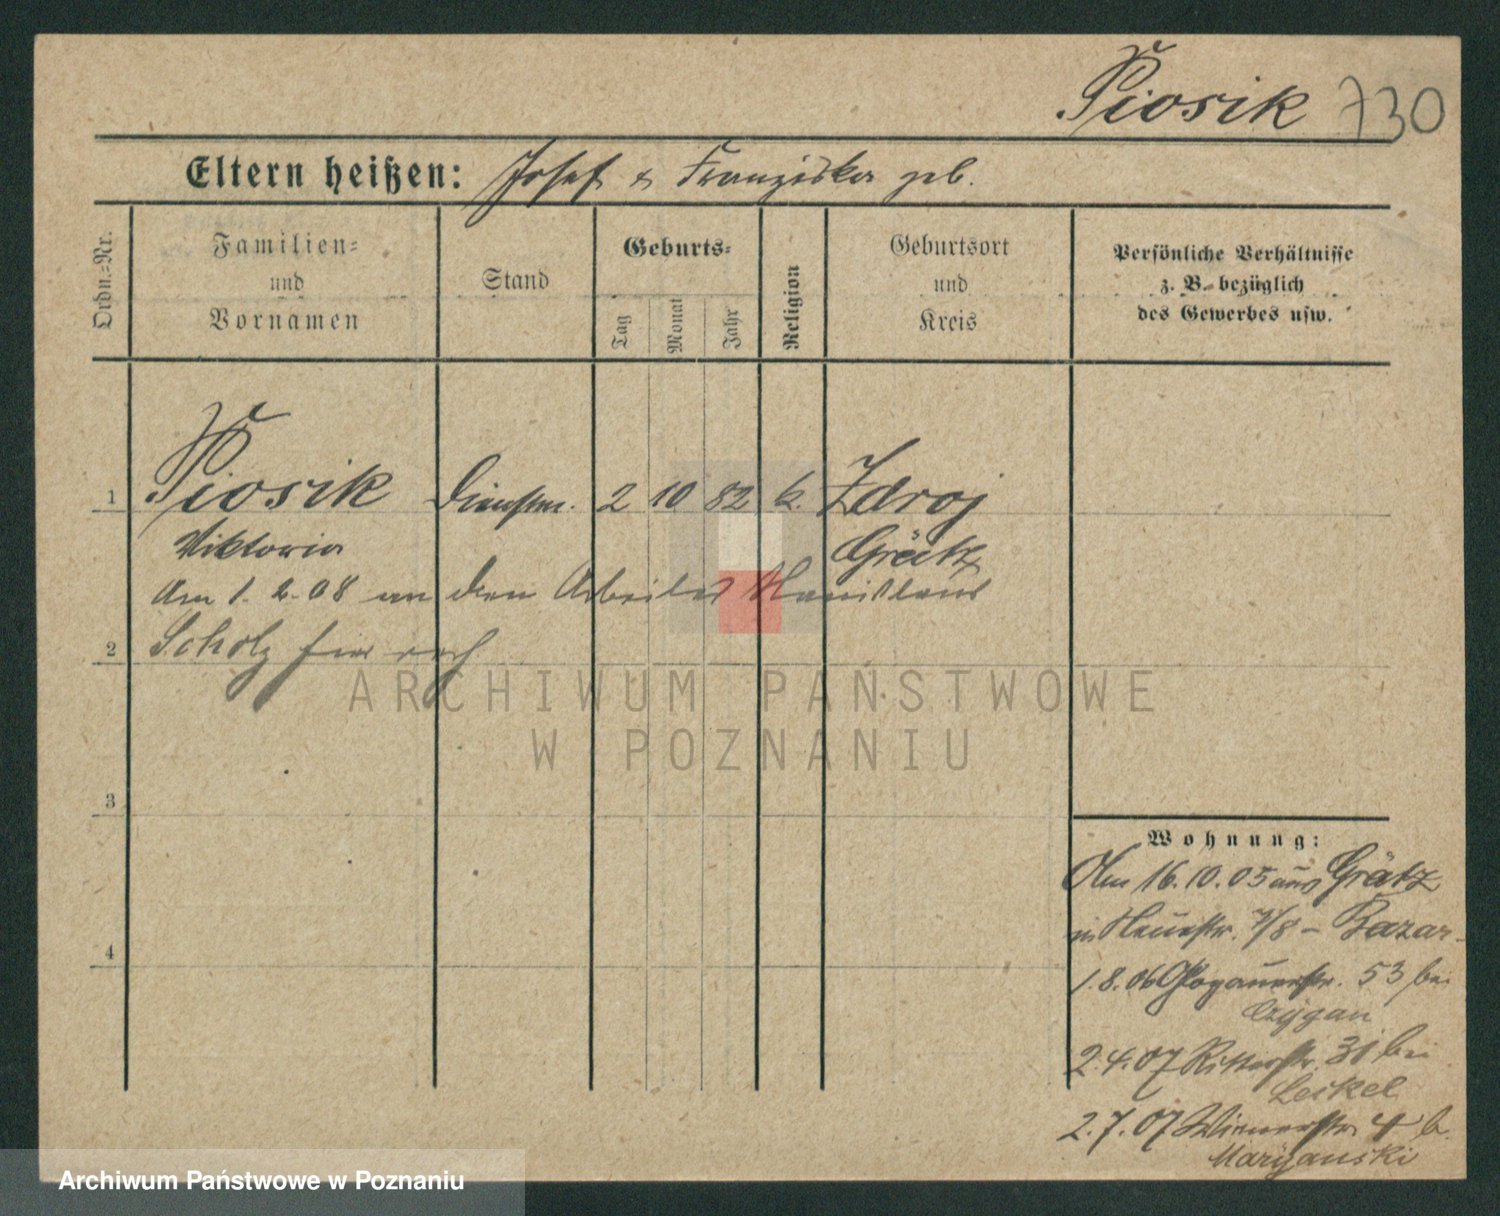 Piosik 730
Eltern heißen: Josef & Franziska geb.
Ordn.-Nr.
Familien-
und
Vornamen
Stand
Geburts-
Tag
Monat
Jahr
Religion
Geburtsort
und
Kreis
Persönliche Verhältnisse
z. B. bezüglich
des Gewerbes usw.
1 Piosik Dienstm. 2 10 82 k. Zdroj
Viktoria Grätz
Am 1. 2. 08 an den Arbeiter Stanislaus
2 Scholz
3
4
Wohnung:
Am 16. 10. 05 aus Grätz
in Neuestr. 7/8 - Bazar
1. 8. 06 Glogauerstr. 53 bei
Czygan
2. 4. 07 Ritterstr. 31 bei
Leikel
2. 7. 07 Wienerstr. 4 b.
Maryanski
ARCHIWUM PAŃSTWOWE
W POZNANIU
Archiwum Państwowe w Poznaniu